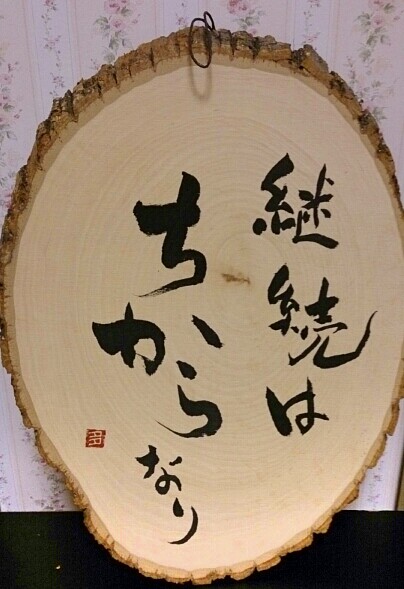 継続は
ちからなり